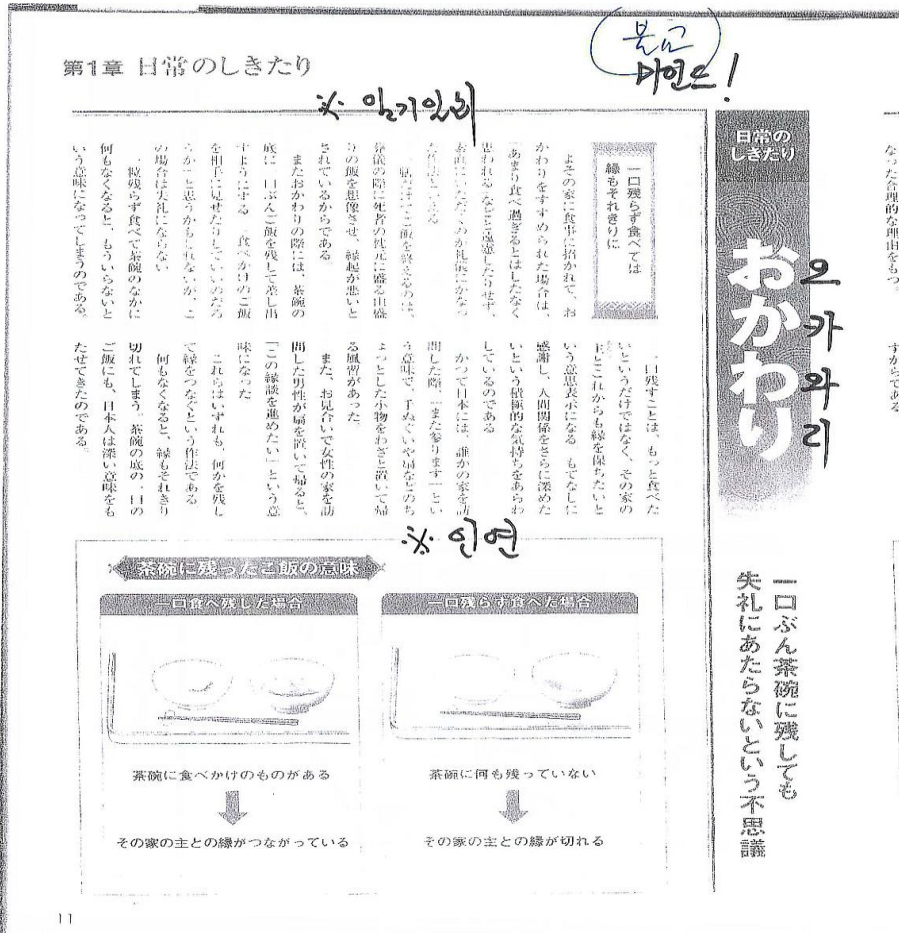 第1章 日常のしきたり
불교
마인드!
※ 일기일회
日常の
しきたり
おかわり
오카와리
一口ぶん茶碗に残しても
失礼にあたらないという不思議
一口残らず食べては
縁もそれきりに
よその家に食事に招かれて、お
かわりをすすめられた場合は、
あまり食べ過ぎるとはしたなく
思われるなどと遠慮したりせず、
葬儀の際に死者の枕元に盛る山盛
りの飯を想像させ、縁起が悪いと
されているからである。
またおかわりの際には、茶碗の
底に一口ぶんご飯を残して差し出
すようにする。食べかけのご飯
を相手に見せたりしていいのだろ
うか、と思うかもしれないが、こ
の場合は失礼にならない
一粒残らず食べて茶碗のなかに
何もなくなると、もういらないと
いう意味になってしまうのである。
一口残すことは、もっと食べた
いというだけではなく、その家の
主とこれからも縁を保ちたいと
いう意思表示になる。もてなしに
感謝し、人間関係をさらに深めた
いという積極的な気持ちをあらわ
しているのである
かつて日本には、誰かの家を訪
問した際、「また参ります」とい
う意味で、手ぬぐいや扇などのち
ょっとした小物をわざと置いて帰
る風習があった
また、お見合いで女性の家を訪
問した男性が扇を置いて帰ると、
「この縁談を進めたい」という意
味になった
これらはいずれも、何かを残し
て縁をつなぐという作法である
何もなくなると、縁もそれきり
切れてしまう。茶碗の底の一口の
ご飯にも、日本人は深い意味をも
たせてきたのである。
※ 인연
茶碗に残ったご飯の意味
一口食べ残した場合
茶碗に食べかけのものがある
その家の主との縁がつながっている
一口残らず食べた場合
茶碗に何も残っていない
その家の主との縁が切れる
11
なった合理的な理由をもつ
すからである